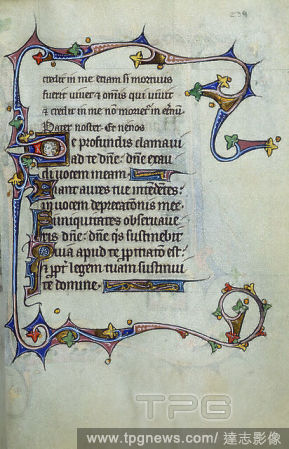 239
credit in me etiam si mortuus
fuerit vivet & omnis qui vivit
& credit in me nō moriet' in etnū.
Pater noster. Et ne nos
De profundis clamavi
ad te dñe: dñe exau
di vocem meam.
Fiant aures tue intendentes:
in vocem deprecationis mee.
Si iniquitates observave
ris dñe: dñe q̄s sustinebit
Quia apud te ppitiatio est
& ppt' legem tuam sustinui
te domine.
TPG
www.tpgnews.com/ 達志影像